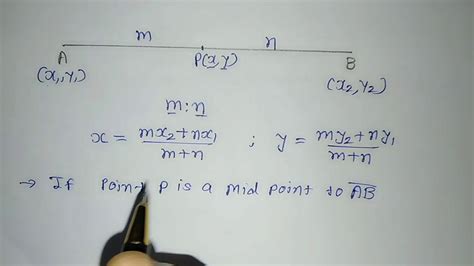 m n
A P(x,y) B
(x₁,y₁) (x₂,y₂)
m:n
x = (mx₂+nx₁)/(m+n) ; y = (my₂+ny₁)/(m+n)
→ If Point P is a mid point to A̅B̅